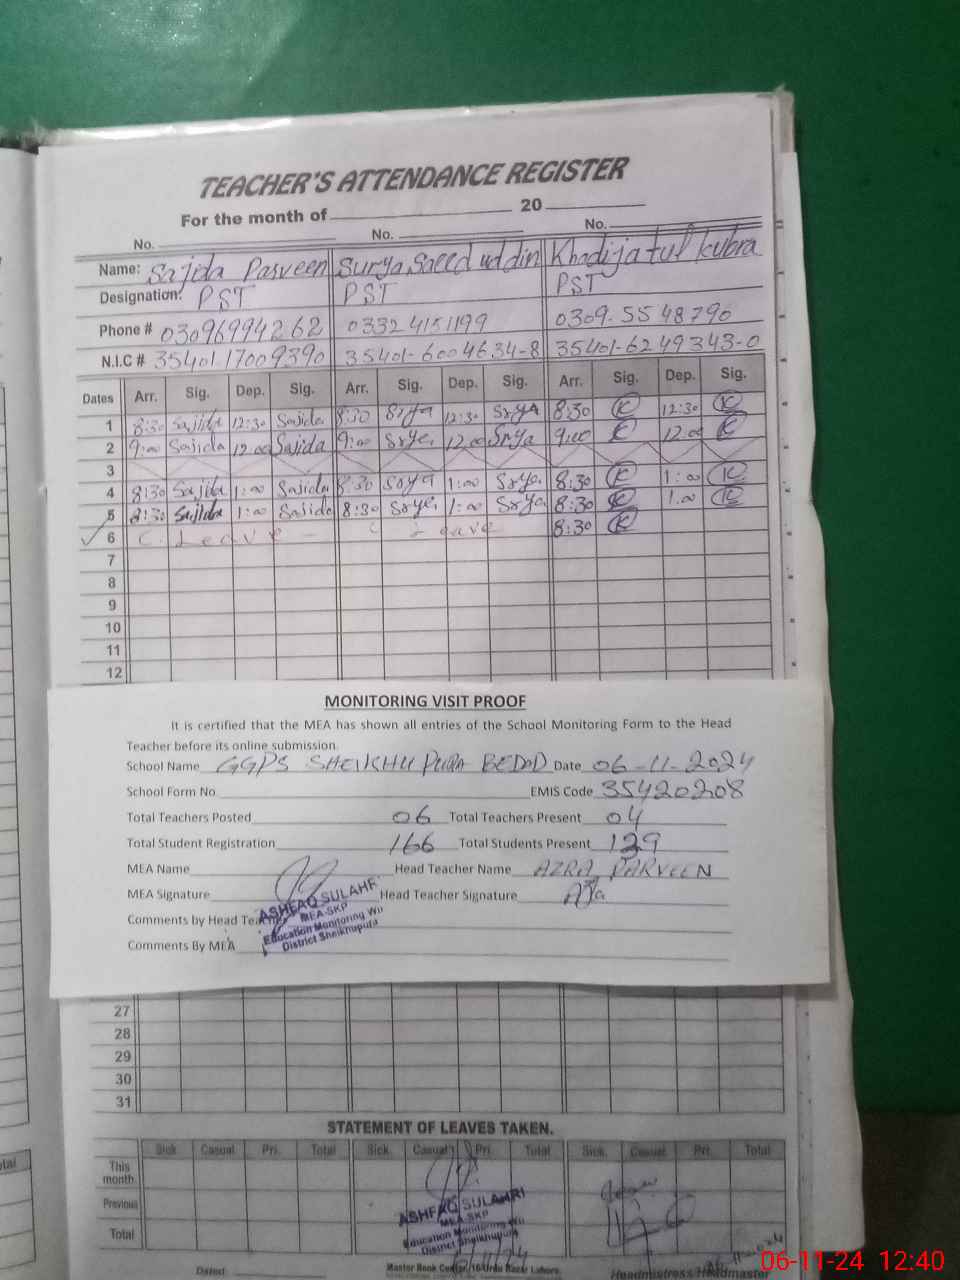 TEACHER'S ATTENDANCE REGISTER
For the month of 20
No. No. No.
Name: Sajida Parveen Surya Saeed uddin Khadija tul kubra
Designation: PST PST PST
Phone # 03096994262 03324151199 0309-5548790
N.I.C # 35401-17009390 35401-6004634-8 35401-6249343-0
Dates Arr. Sig. Dep. Sig. Arr. Sig. Dep. Sig. Arr. Sig. Dep. Sig.
1 8:30 Sajida 12:30 Sajida 8:30 Srya 12:30 Srya 8:30 K 12:30 K
2 9:00 Sajida 12.00 Sajida 9:00 Srya 12.00 Srya 9:00 K 12.00 K
3
4 8:30 Sajida 1:00 Sajida 8:30 Srya 1:00 Srya 8:30 K 1:00 K
5 8:30 Sajida 1:00 Sajida 8:30 Srya 1:00 Srya 8:30 K 1.00 K
6 C. Leave C Leave 8:30 K
7
8
9
10
11
12
MONITORING VISIT PROOF
It is certified that the MEA has shown all entries of the School Monitoring Form to the Head
Teacher before its online submission.
School Name GGPS SHEIKHUPURA BEDAD Date 06-11-2024
School Form No. EMIS Code 35420208
Total Teachers Posted 06 Total Teachers Present 04
Total Student Registration 166 Total Students Present 129
MEA Name Head Teacher Name AZRA PARVEEN
MEA Signature Head Teacher Signature
ASHFAQ SULAHRI
MEA-SKP
Education Monitoring
District Sheikhupura
Comments by Head Teacher
Comments By MEA
27
28
29
30
31
STATEMENT OF LEAVES TAKEN.
Sick Casual Pri. Total Sick Casual Pri. Total Sick Casual Pri. Total
This month
Previous
Total
ASHFAQ SULAHRI
MEA-SKP
Education Monitoring
District Sheikhupura
Dated: Master Book 16 Urdu Bazar Lahore. Headmistress/Headmaster
06-11-24 12:40